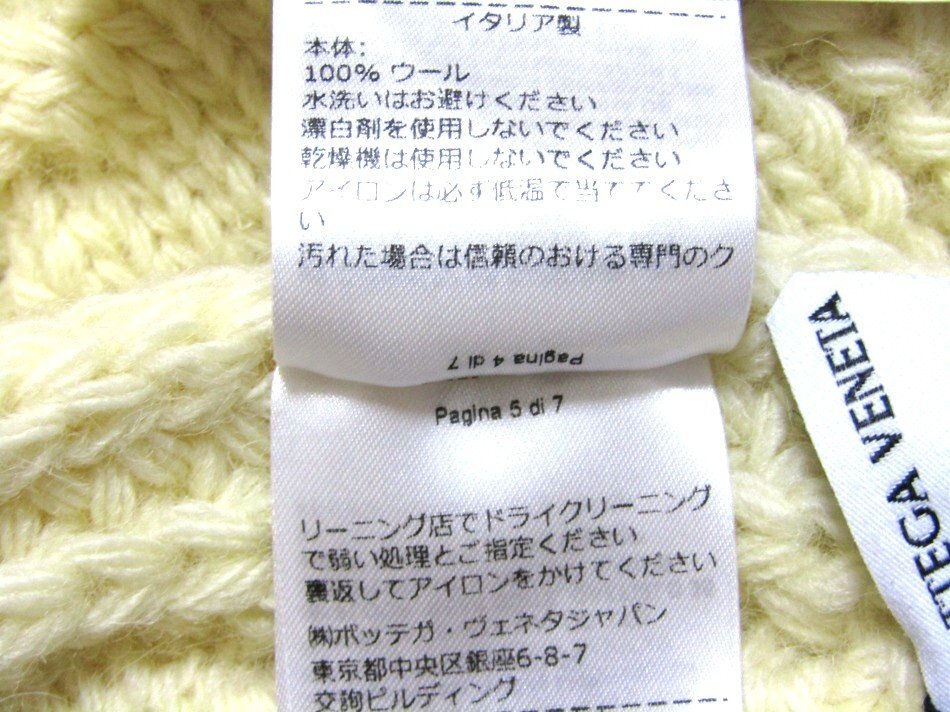 イタリア製
本体:
100% ウール
水洗いはお避けください
漂白剤を使用しないでください
乾燥機は使用しないでください
アイロンは必ず低温で当ててくださ
い
汚れた場合は信頼のおける専門のク
Pagina 4 di 7
Pagina 5 di 7
リーニング店でドライクリーニング
で弱い処理とご指定ください
裏返してアイロンをかけてください
㈱ボッテガ・ヴェネタジャパン
東京都中央区銀座6-8-7
交詢ビルディング
TTEGA VENETA